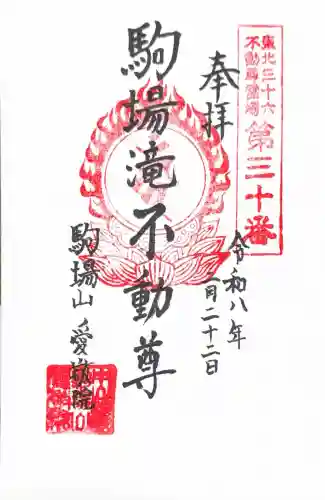 東北三十六
不動尊霊場
第三十番
奉拝
令和八年
一月二十二日
駒場滝不動尊
駒場山 愛敬院